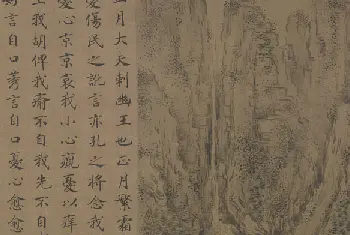 正月大夫刺幽王也正月繁霜
憂傷民之訛言亦孔之将念我
憂心京京哀我小心癙憂以痒
生我胡俾我瘉不自我先不自
言自口莠言自口憂心愈愈